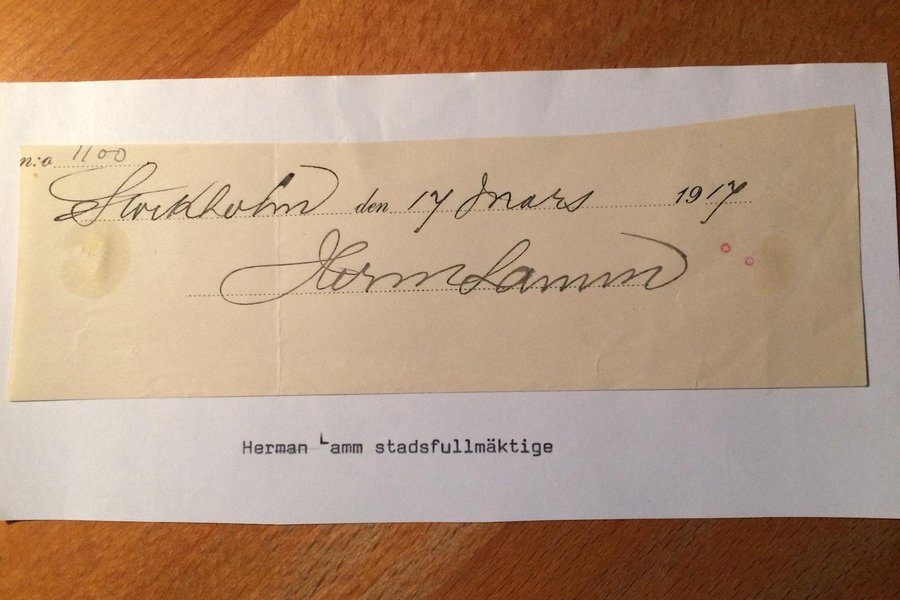 n:o 1100
Stockholm den 17 mars 1917
Herm Lamm
Herman Lamm stadsfullmäktige